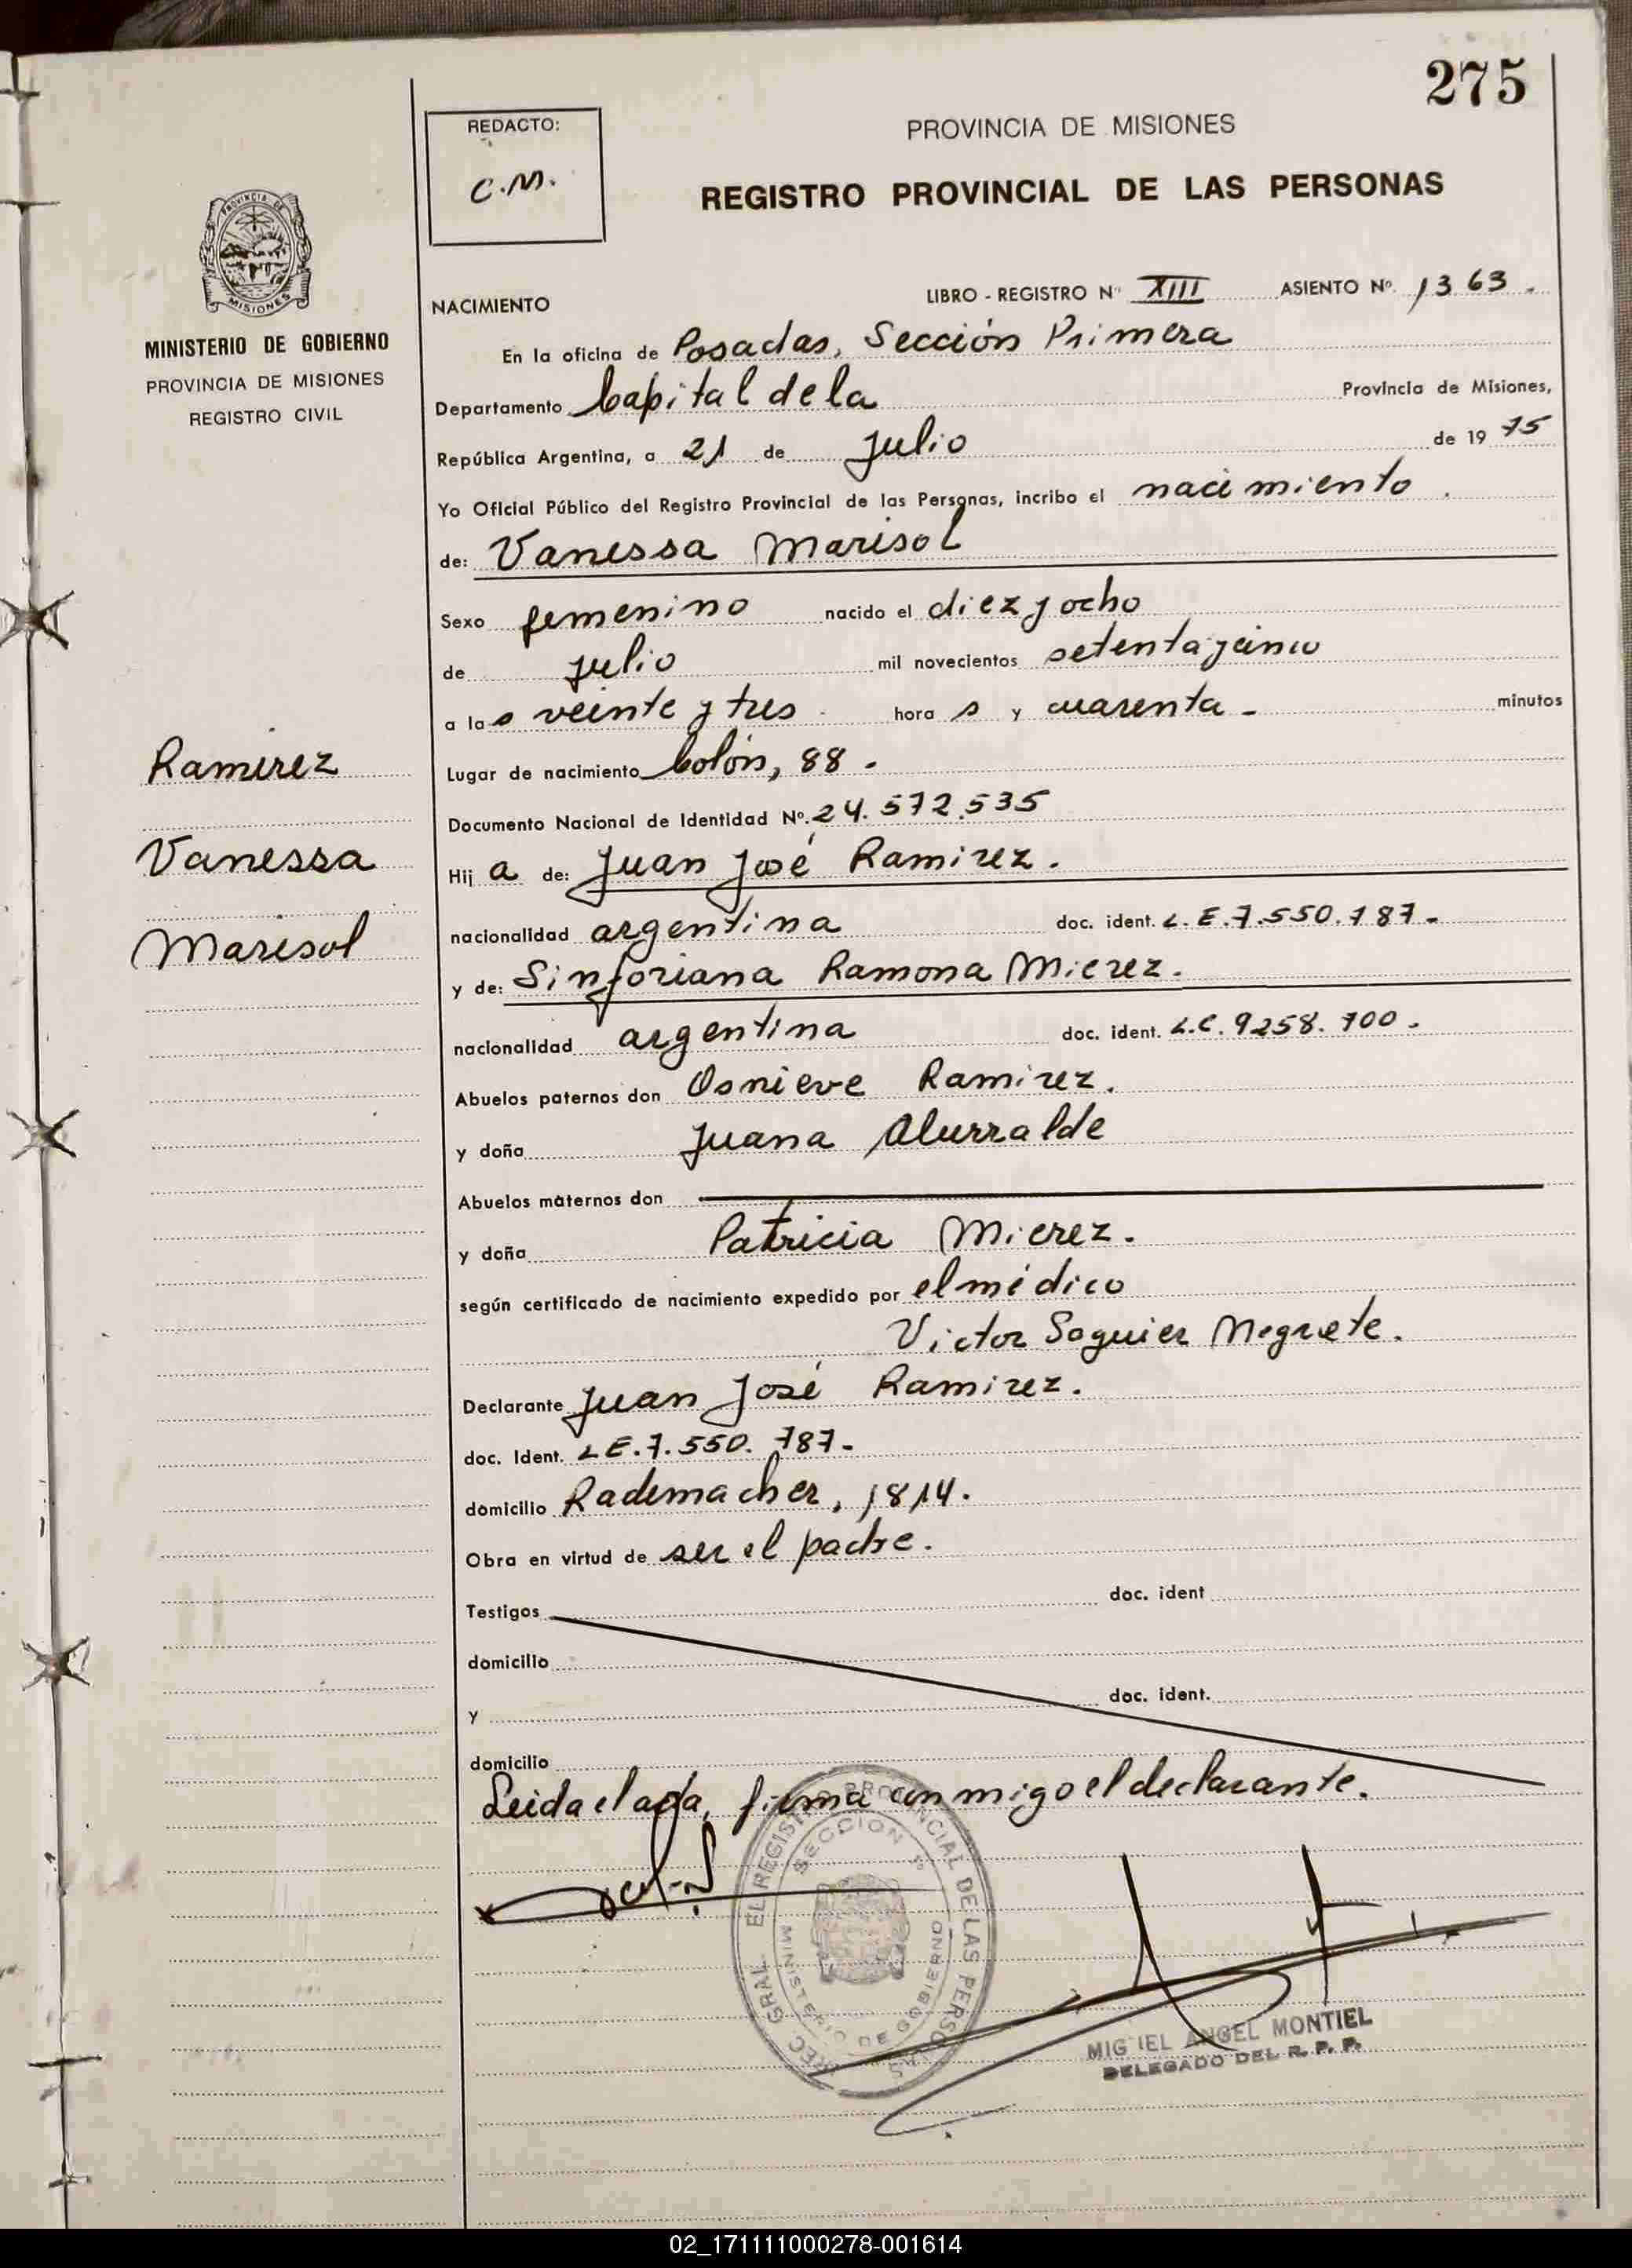 275
REDACTO:
C.M.
PROVINCIA DE MISIONES
REGISTRO PROVINCIAL DE LAS PERSONAS
MISIONES
MINISTERIO DE GOBIERNO
PROVINCIA DE MISIONES
REGISTRO CIVIL
NACIMIENTO LIBRO - REGISTRO Nº XIII ASIENTO Nº 1363.
En la oficina de Posadas, Sección Primera
Departamento Capital de la Provincia de Misiones,
República Argentina, a 21 de Julio de 1975
Yo Oficial Público del Registro Provincial de las Personas, incribo el nacimiento.
de: Vanessa Marisol
Sexo femenino nacido el diez y ocho
de julio mil novecientos setenta y cinco
a las veinte y tres hora s y cuarenta - minutos
Ramirez
Lugar de nacimiento Colón, 88.
Documento Nacional de Identidad Nº. 24.572.535
Vanessa
Hij a de: Juan José Ramirez.
Marisol
nacionalidad argentina doc. ident. L.E.7.550.787-
y de: Sinforiana Ramona Mierez.
nacionalidad argentina doc. ident. L.C. 9258.700.
Abuelos paternos don Osnieve Ramirez.
y doña Juana Alurralde
Abuelos maternos don
y doña Patricia Mierez.
según certificado de nacimiento expedido por el médico
Victor Soguier Negrete.
Declarante Juan José Ramirez.
doc. Ident. L E.7.550.787-
domicilio Rademacher, 1814.
Obra en virtud de ser el padre.
Testigos doc. ident
domicilio
y doc. ident.
domicilio
Leida el acta, firma conmigo el declarante.
REC. GRAL. EL REGISTRO PROVINCIAL DE LAS PERSONAS
SECCION
MINISTERIO DE GOBIERNO
MIG IEL ANGEL MONTIEL
DELEGADO DEL R. P. P.
02_171111000278-001614